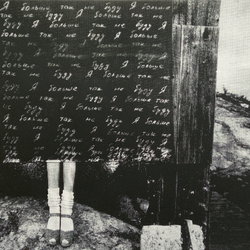 Я больше так не буду Я больше
так не буду Я больше так не буду Я
больше так не буду Я больше
так не буду Я больше так не
больше так не буду Я больше
так не буду Я больше так не
Я больше так не буду Я
больше так не буду Я больше так
Я больше так не буду Я больше
так не буду Я больше так не
буду Я больше так не